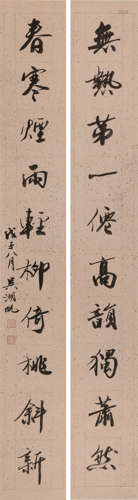 無熱第一僊高韻獨蕭然
春寒煙雨輕柳倚桃斜新
戊子八月吳湖帆